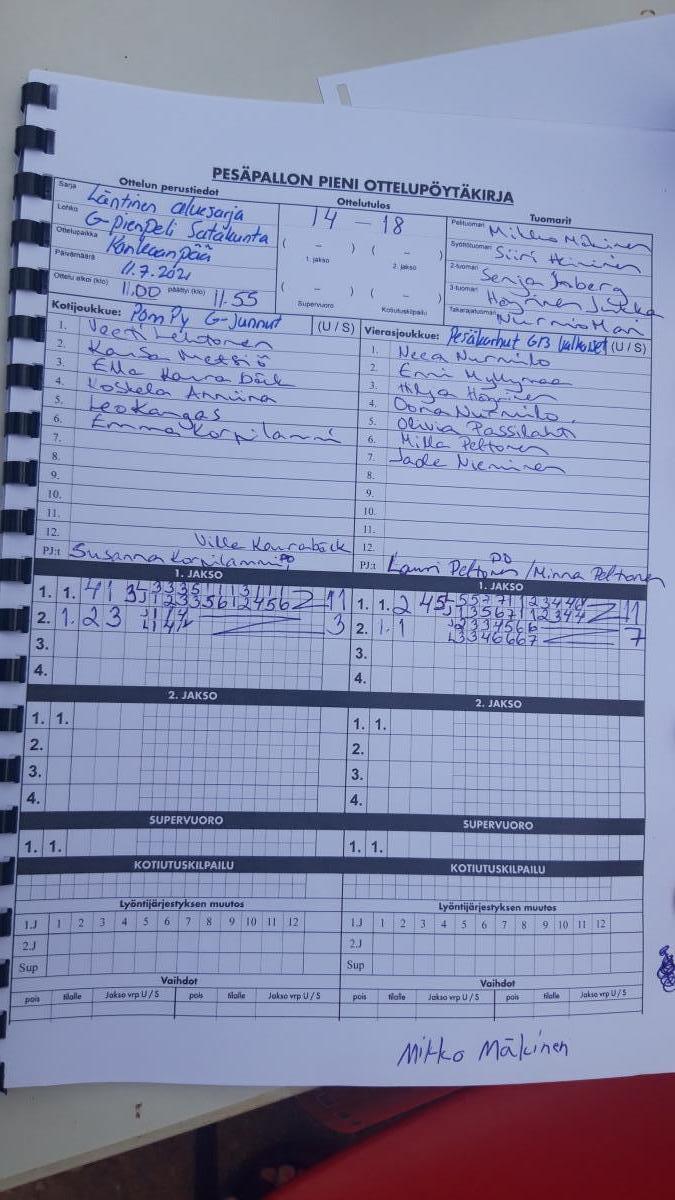 PESÄPALLON PIENI OTTELUPÖYTÄKIRJA
Ottelun perustiedot
Sarja Läntinen aluesarja
Lohko G-pienpeli Satakunta
Ottelupaikka Kankaanpää
Päivämäärä 11.7.2021
Ottelu alkoi (klo) 11.00 päättyi (klo) 11.55
Ottelutulos
14 - 18
( - ) ( - )
1. jakso 2. jakso
( - ) ( - )
Supervuoro Kotiutuskilpailu
Tuomarit
Pelituomari Mikko Mäkinen
Syöttötuomari Siiri Heininen
2-tuomari Senja
3-tuomari Jukka
Takarajatuomari Nurmio Mari
Kotijoukkue: PomPy G-Junnut (U / S)
1. Veeti Lehtonen
2. Metsiö
3. Ella Kaura Bäck
4. Koskela Anniina
5. Leo Kangas
6. Emma Korpilammi
7.
8.
9.
10.
11.
12. Ville Kauraback
PJ:t Susanna Korpilammi
Vierasjoukkue: Pesäkarhut G13 Valkoset (U / S)
1. Neea Nurmilo
2. Enni
3. Hilja
4. Oona Nurmilo
5. Olivia Passilahti
6. Milla Peltonen
7. Jade Nieminen
8.
9.
10.
11.
12.
PJ:t Lauri Peltonen / Minna Peltonen
1. JAKSO
1. 1. 11
2. 1. 2 3 3
3.
4.
1. JAKSO
1. 1. 2 11
2. 1. 1 7
3.
4.
2. JAKSO
1. 1.
2.
3.
4.
2. JAKSO
1. 1.
2.
3.
4.
SUPERVUORO
1. 1.
SUPERVUORO
1. 1.
KOTIUTUSKILPAILU
KOTIUTUSKILPAILU
Lyöntijärjestyksen muutos
1.J 1 2 3 4 5 6 7 8 9 10 11 12
2.J
Sup
Lyöntijärjestyksen muutos
1.J 1 2 3 4 5 6 7 8 9 10 11 12
2.J
Sup
Vaihdot
pois tilalle Jakso vrp U / S pois tilalle Jakso vrp U / S
Vaihdot
pois tilalle Jakso vrp U / S pois tilalle Jakso vrp U / S
Mikko Mäkinen